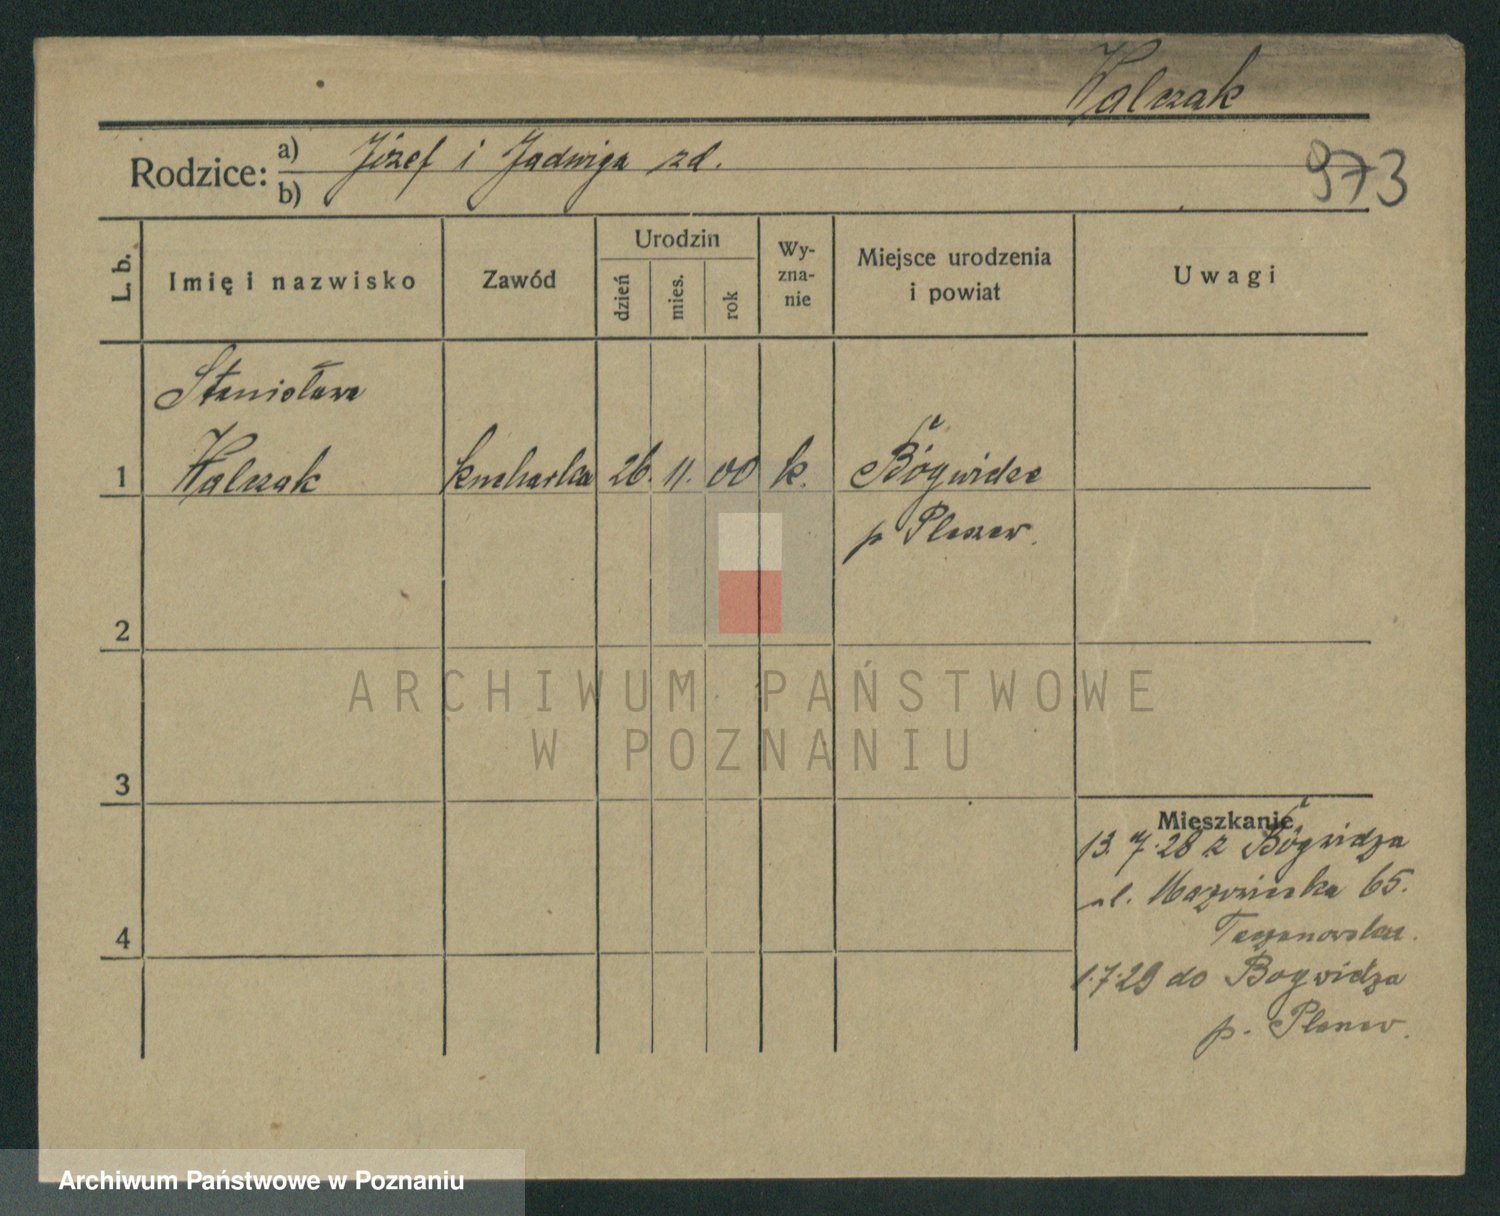 Walczak
Rodzice: a) Józef i Jadwiga zd.
b)
973
L. b.
Imię i nazwisko
Zawód
Urodzin
dzień
mies.
rok
Wy-
zna-
nie
Miejsce urodzenia
i powiat
Uwagi
Stanisława
1 Walczak kucharka 26. 11. 00 k. Bógwidze
p Pleszew.
2
3
4
Mieszkanie
13.7.28 z Bógwidza
ul. Mazowiecka 65.
1.7.29 do Bogwidza
p. Pleszew.
ARCHIWUM PAŃSTWOWE
W POZNANIU
Archiwum Państwowe w Poznaniu